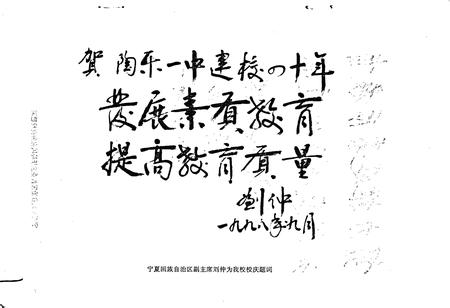 贺陶乐一中建校四十年
發展素质教育
提高教育质量
刘仲
一九九八年九月
宁夏回族自治区副主席刘仲为我校校庆题词